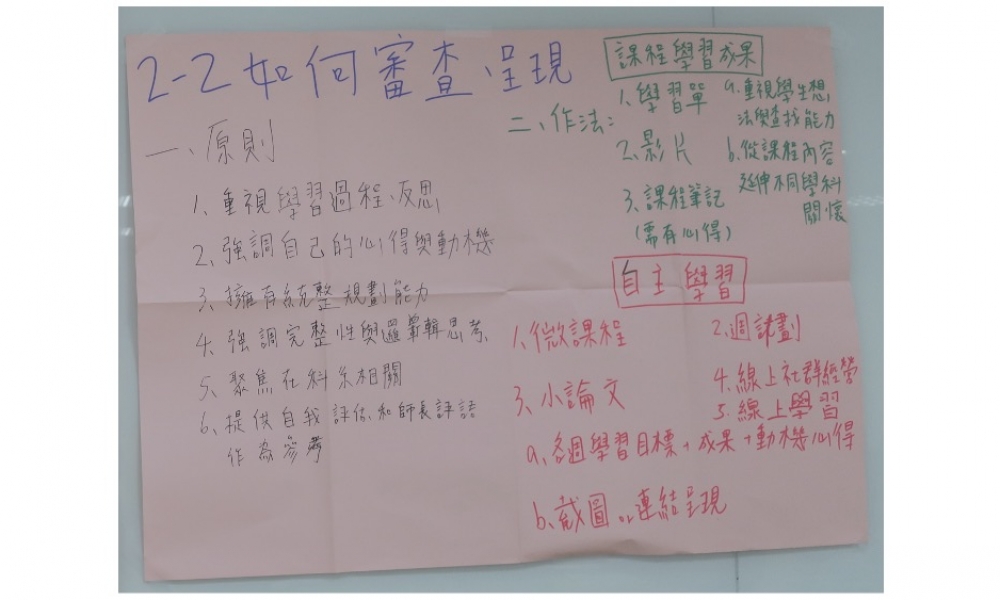 2-2如何審查、呈現
一、原則
1、重視學習過程、反思
2、強調自己的心得與動機
3、擁有統整規劃能力
4、強調完整性與邏輯思考
5、聚焦在科系相關
6、提供自我評估和師長評語
作為參考
二、作法：
課程學習成果
1、學習單
2、影片
3、課程筆記
(需有心得)
a、重視學生想
法與查找能力
b、從課程內容
延伸不同學科
關懷
自主學習
1、微課程
2、週計劃
3、小論文
4、線上社群經營
5、線上學習
a、各週學習目標+成果+動機心得
b、截圖or連結呈現